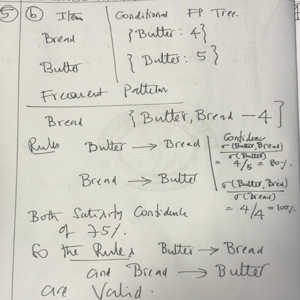 5 b Item Conditional FP Tree.
Bread { Butter : 4 }
Butter { Butter : 5 }
Frequent Pattern
Bread { Butter, Bread – 4 }
Rules Butter → Bread
Confidence
σ(Butter, Bread)
σ(Butter)
= 4/5 = 80%
Bread → Butter
σ(Butter, Bread)
σ(Bread)
= 4/4 = 100%
Both Satisfy Confidence
of 75%.
So the Rules Butter → Bread
and Bread → Butter
are Valid.